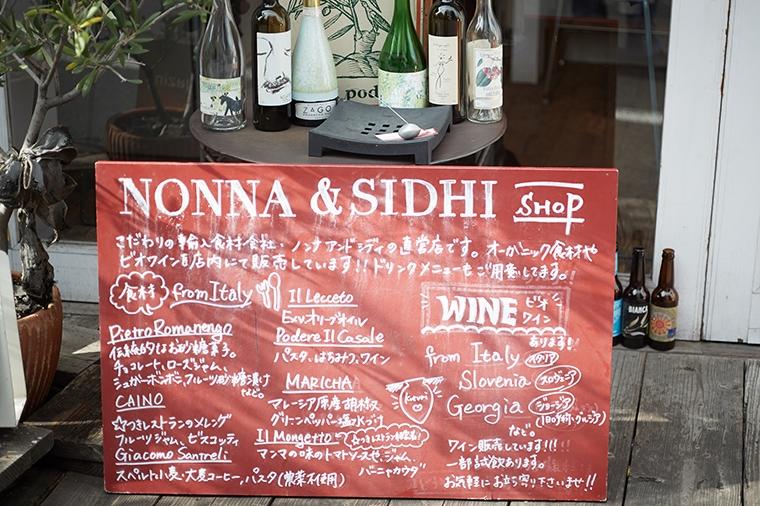 NONNA & SIDHI SHOP
こだわりの輸入食材会社・ノンナアンドシディの直営店です。オーガニック食材や
ビオワインを店内にて販売しています!!ドリンクメニューもご用意してます。
食材 from Italy
Pietro Romanengo
伝統的なお砂糖菓子。
チョコレート、ローズジャム、
シュガーボンボニ、フルーツ砂糖漬け
など。
CAINO
☆つきレストランのメレンゲ
フルーツジャム、ビスコッティ
Giacomo Santreli
スペルト小麦・大麦コーヒー、パスタ(農薬不使用)
Il Lecceto
Exv.オリーブオイル
Podere Il Casale
パスタ、はちみつ、ワイン
MARICHA
マレーシア原産胡椒
グリーンペッパー塩水づけ
Il Mongetto
マンマの味のトマトソースや、ジャム、
バーニャカウダ
WINE ビオワイン
あります!
from Italy イタリア
Slovenia スロヴェニア
Georgia ジョージア
(旧グルジア)
など。
ワイン販売しています!!!
一部試飲あります。
お気軽にお立ち寄り下さいませ!!
Kevri
ZAGO
pod
BIANCA